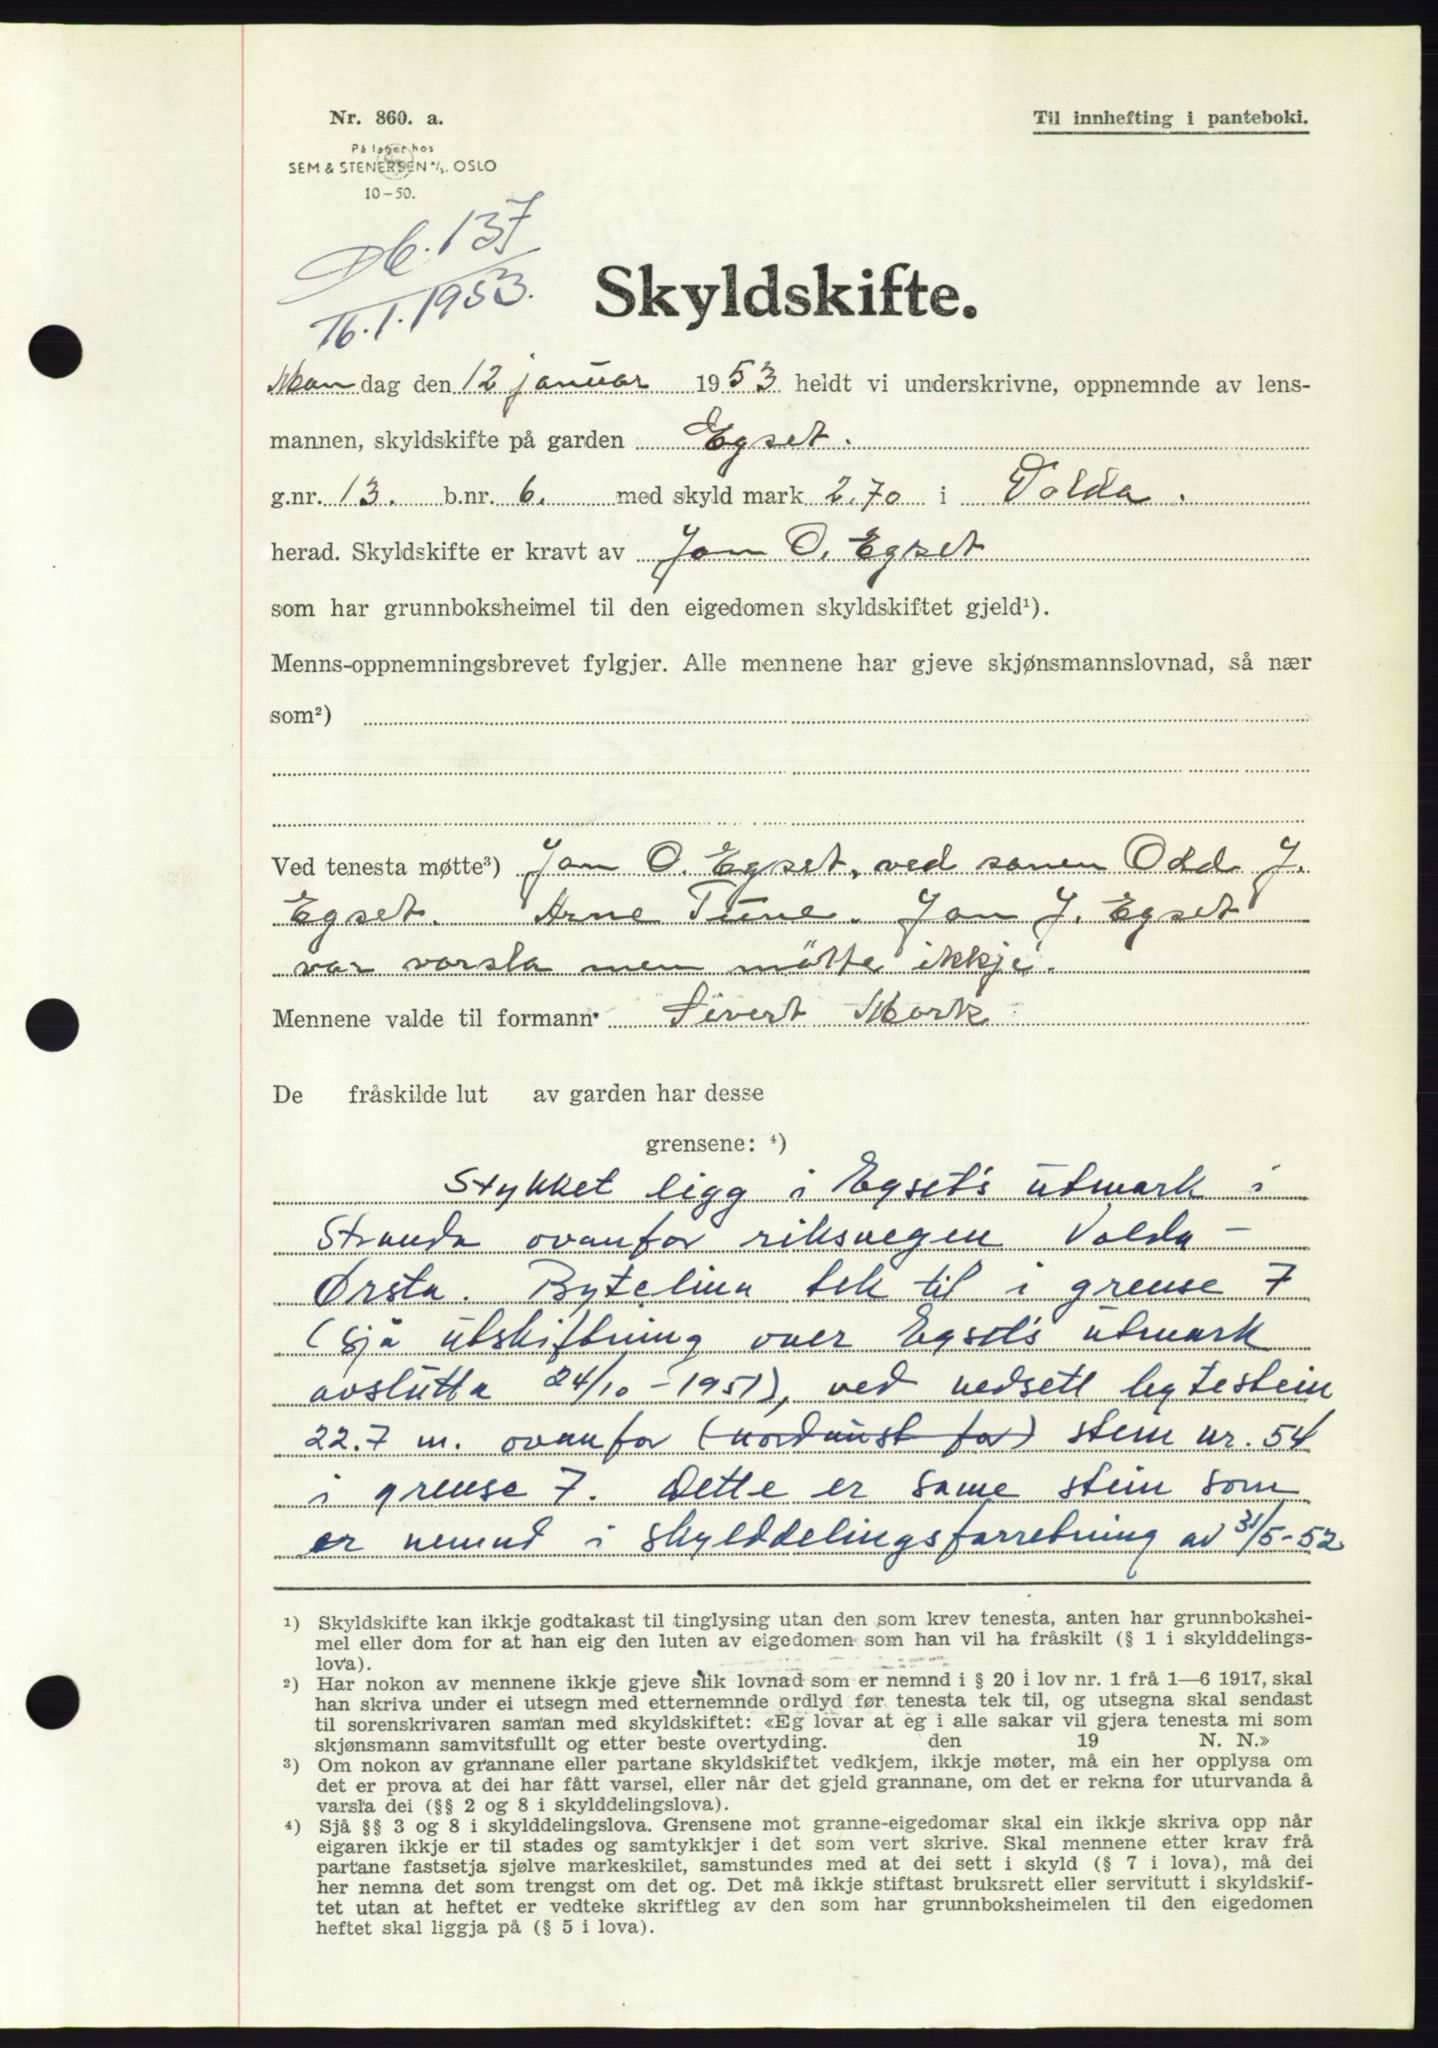 Nr. 860. a.
Til innhefting i panteboki.
På lager hos
SEM & STENERSEN A/S, OSLO
10-50.
Db. 137
16.1.1953.
Skyldskifte.
Mandag den 12 januar 1953 heldt vi underskrivne, oppnemnde av lens-
mannen, skyldskifte på garden Egset.
g.nr. 13. b.nr. 6. med skyld mark 2.70 i Volda.
herad. Skyldskifte er kravt av Jon O. Egset
som har grunnboksheimel til den eigedomen skyldskiftet gjeld¹).
Menns-oppnemningsbrevet fylgjer. Alle mennene har gjeve skjønsmannslovnad, så nær
som²)
Ved tenesta møtte³) Jon O. Egset, ved sonen Odd J.
Egset. Arne Tune. Jon J. Egset
var varsla men mötte ikkje.
Mennene valde til formann Sivert Mork
De fråskilde lut av garden har desse
grensene: ⁴)
Stykket ligg i Egset's utmark i
Stranda ovanfor riksvegen Volda –
Ørsta. Bytelina tek til i grense 7
(sjå utskiftning over Egset's utmark
avslutta 24/10 - 1951), ved nedsett bytestein
22.7 m. ovanfor (nordaust for) stein nr. 54
i grense 7. Dette er same stein som
er nemnd i skylddelingsforretning av 31/5-52
1) Skyldskifte kan ikkje godtakast til tinglysing utan den som krev tenesta, anten har grunnbokshei-
mel eller dom for at han eig den luten av eigedomen som han vil ha fråskilt (§ 1 i skylddelings-
lova).
2) Har nokon av mennene ikkje gjeve slik lovnad som er nemnd i § 20 i lov nr. 1 frå 1—6 1917, skal
han skriva under ei utsegn med etternemnde ordlyd før tenesta tek til, og utsegna skal sendast
til sorenskrivaren saman med skyldskiftet: «Eg lovar at eg i alle sakar vil gjera tenesta mi som
skjønsmann samvitsfullt og etter beste overtyding. den 19 N. N.»
3) Om nokon av grannane eller partane skyldskiftet vedkjem, ikkje møter, må ein her opplysa om
det er prova at dei har fått varsel, eller når det gjeld grannane, om det er rekna for uturvanda å
varsla dei (§§ 2 og 8 i skylddelingslova).
4) Sjå §§ 3 og 8 i skylddelingslova. Grensene mot granne-eigedomar skal ein ikkje skriva opp når
eigaren ikkje er til stades og samtykkjer i det som vert skrive. Skal mennene etter krav frå
partane fastsetja sjølve markeskilet, samstundes med at dei sett i skyld (§ 7 i lova), må dei
her nemna det som trengst om det og. Det må ikkje stiftast bruksrett eller servitutt i skyldskif-
tet utan at heftet er vedteke skriftleg av den som har grunnboksheimelen til den eigedomen
heftet skal liggja på (§ 5 i lova).